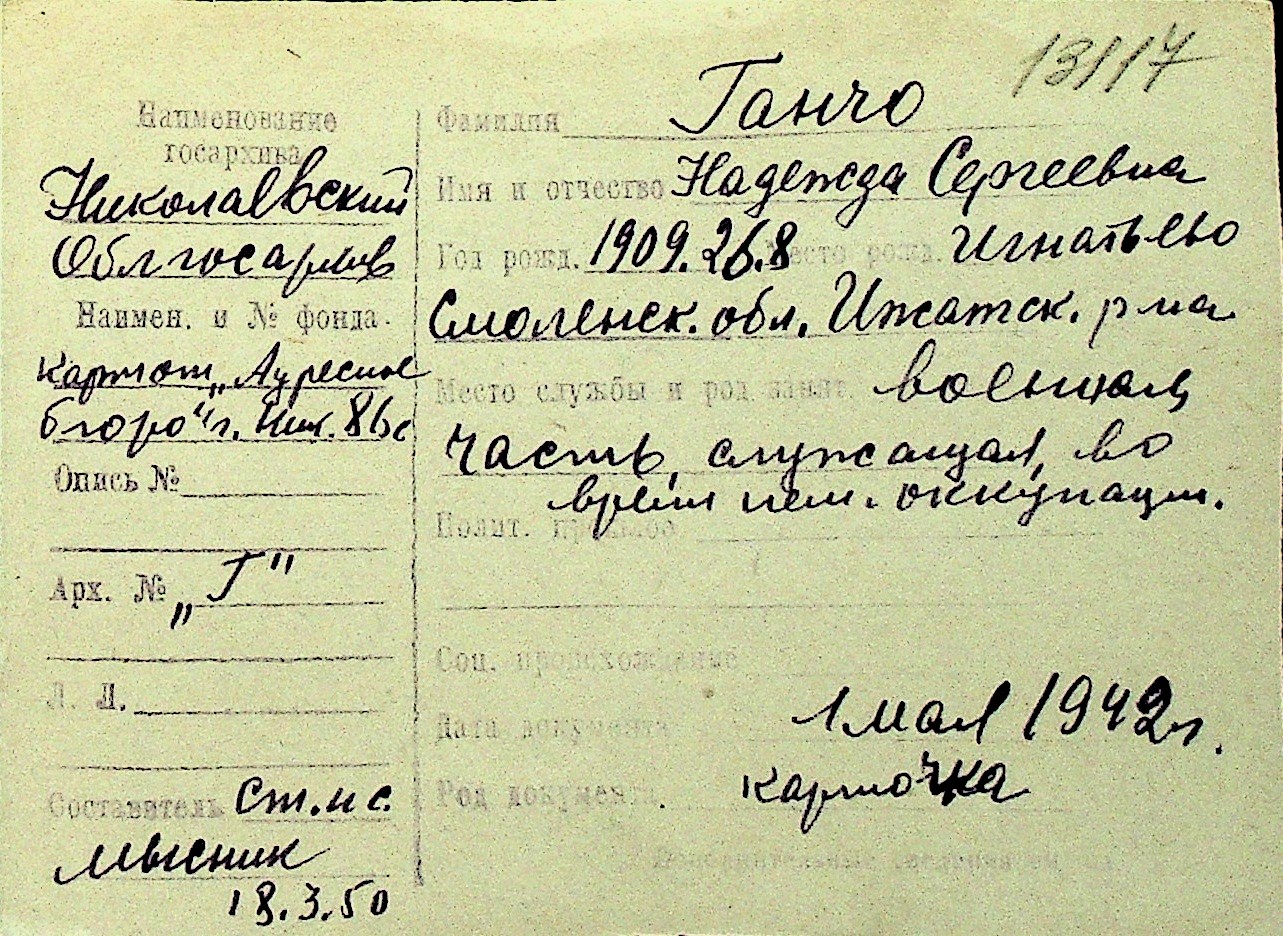 13117
Наименование
госархива
Николаевский
Облгосархив
Наимен. и № фонда.
Картот. „Адресное
бюро" г. Ник.
Опись №
Арх. № „Г"
Л. Л.
Составитель ст. н. с.
Мысник
18.3.50
Фамилия Ганчо
Имя и отчество Надежда Сергеевна
Год рожд. 1909.26.8 Место рожд. Игнатьево
Смоленск. обл. Гжатск. р-на
Место службы и род занят. военная
часть, служащая, во
время нем. оккупации.
Полит. прошлое
Соц. происхождение
Дата документа 1 мая 1942 г.
Род документа. карточка